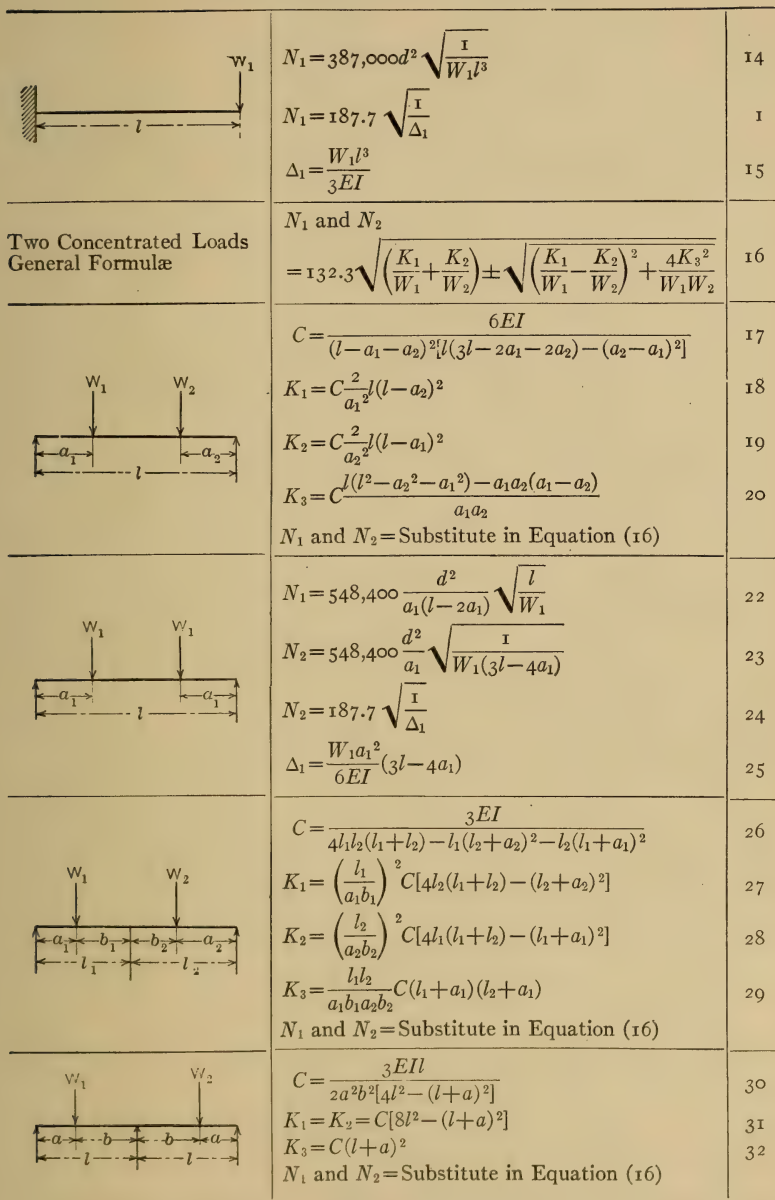 W₁
l
N₁=387,000d²√(1/(W₁l³)) 14
N₁=187.7√(1/Δ₁) 1
Δ₁=W₁l³/(3EI) 15
Two Concentrated Loads
General Formulæ
N₁ and N₂
=132.3√((K₁/W₁+K₂/W₂)±√((K₁/W₁−K₂/W₂)²+4K₃²/(W₁W₂))) 16
W₁ W₂
a₁ a₂
l
C=6EI/((l−a₁−a₂)²[l(3l−2a₁−2a₂)−(a₂−a₁)²]) 17
K₁=C(2/a₁²)l(l−a₂)² 18
K₂=C(2/a₂²)l(l−a₁)² 19
K₃=C(l(l²−a₂²−a₁²)−a₁a₂(a₁−a₂))/(a₁a₂) 20
N₁ and N₂=Substitute in Equation (16)
W₁ W₁
a₁ a₁
l
N₁=548,400 d²/(a₁(l−2a₁)) √(l/W₁) 22
N₂=548,400 d²/a₁ √(1/(W₁(3l−4a₁))) 23
N₂=187.7√(1/Δ₁) 24
Δ₁=W₁a₁²/(6EI)(3l−4a₁) 25
W₁ W₂
a₁ b₁ b₂ a₂
l₁ l₂
C=3EI/(4l₁l₂(l₁+l₂)−l₁(l₂+a₂)²−l₂(l₁+a₁)²) 26
K₁=(l₁/(a₁b₁))²C[4l₂(l₁+l₂)−(l₂+a₂)²] 27
K₂=(l₂/(a₂b₂))²C[4l₁(l₁+l₂)−(l₁+a₁)²] 28
K₃=l₁l₂/(a₁b₁a₂b₂)C(l₁+a₁)(l₂+a₁) 29
N₁ and N₂=Substitute in Equation (16)
W₁ W₂
a b b a
l l
C=3EIl/(2a²b²[4l²−(l+a)²]) 30
K₁=K₂=C[8l²−(l+a)²] 31
K₃=C(l+a)² 32
N₁ and N₂=Substitute in Equation (16)